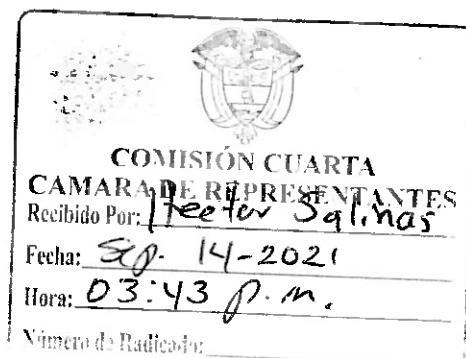 COMISIÓN CUARTA
CAMARA DE REPRESENTANTES
Recibido Por: Heetor Salinas
Fecha: Sep. 14-2021
Hora: 03:43 p.m.
Número de Radicado: